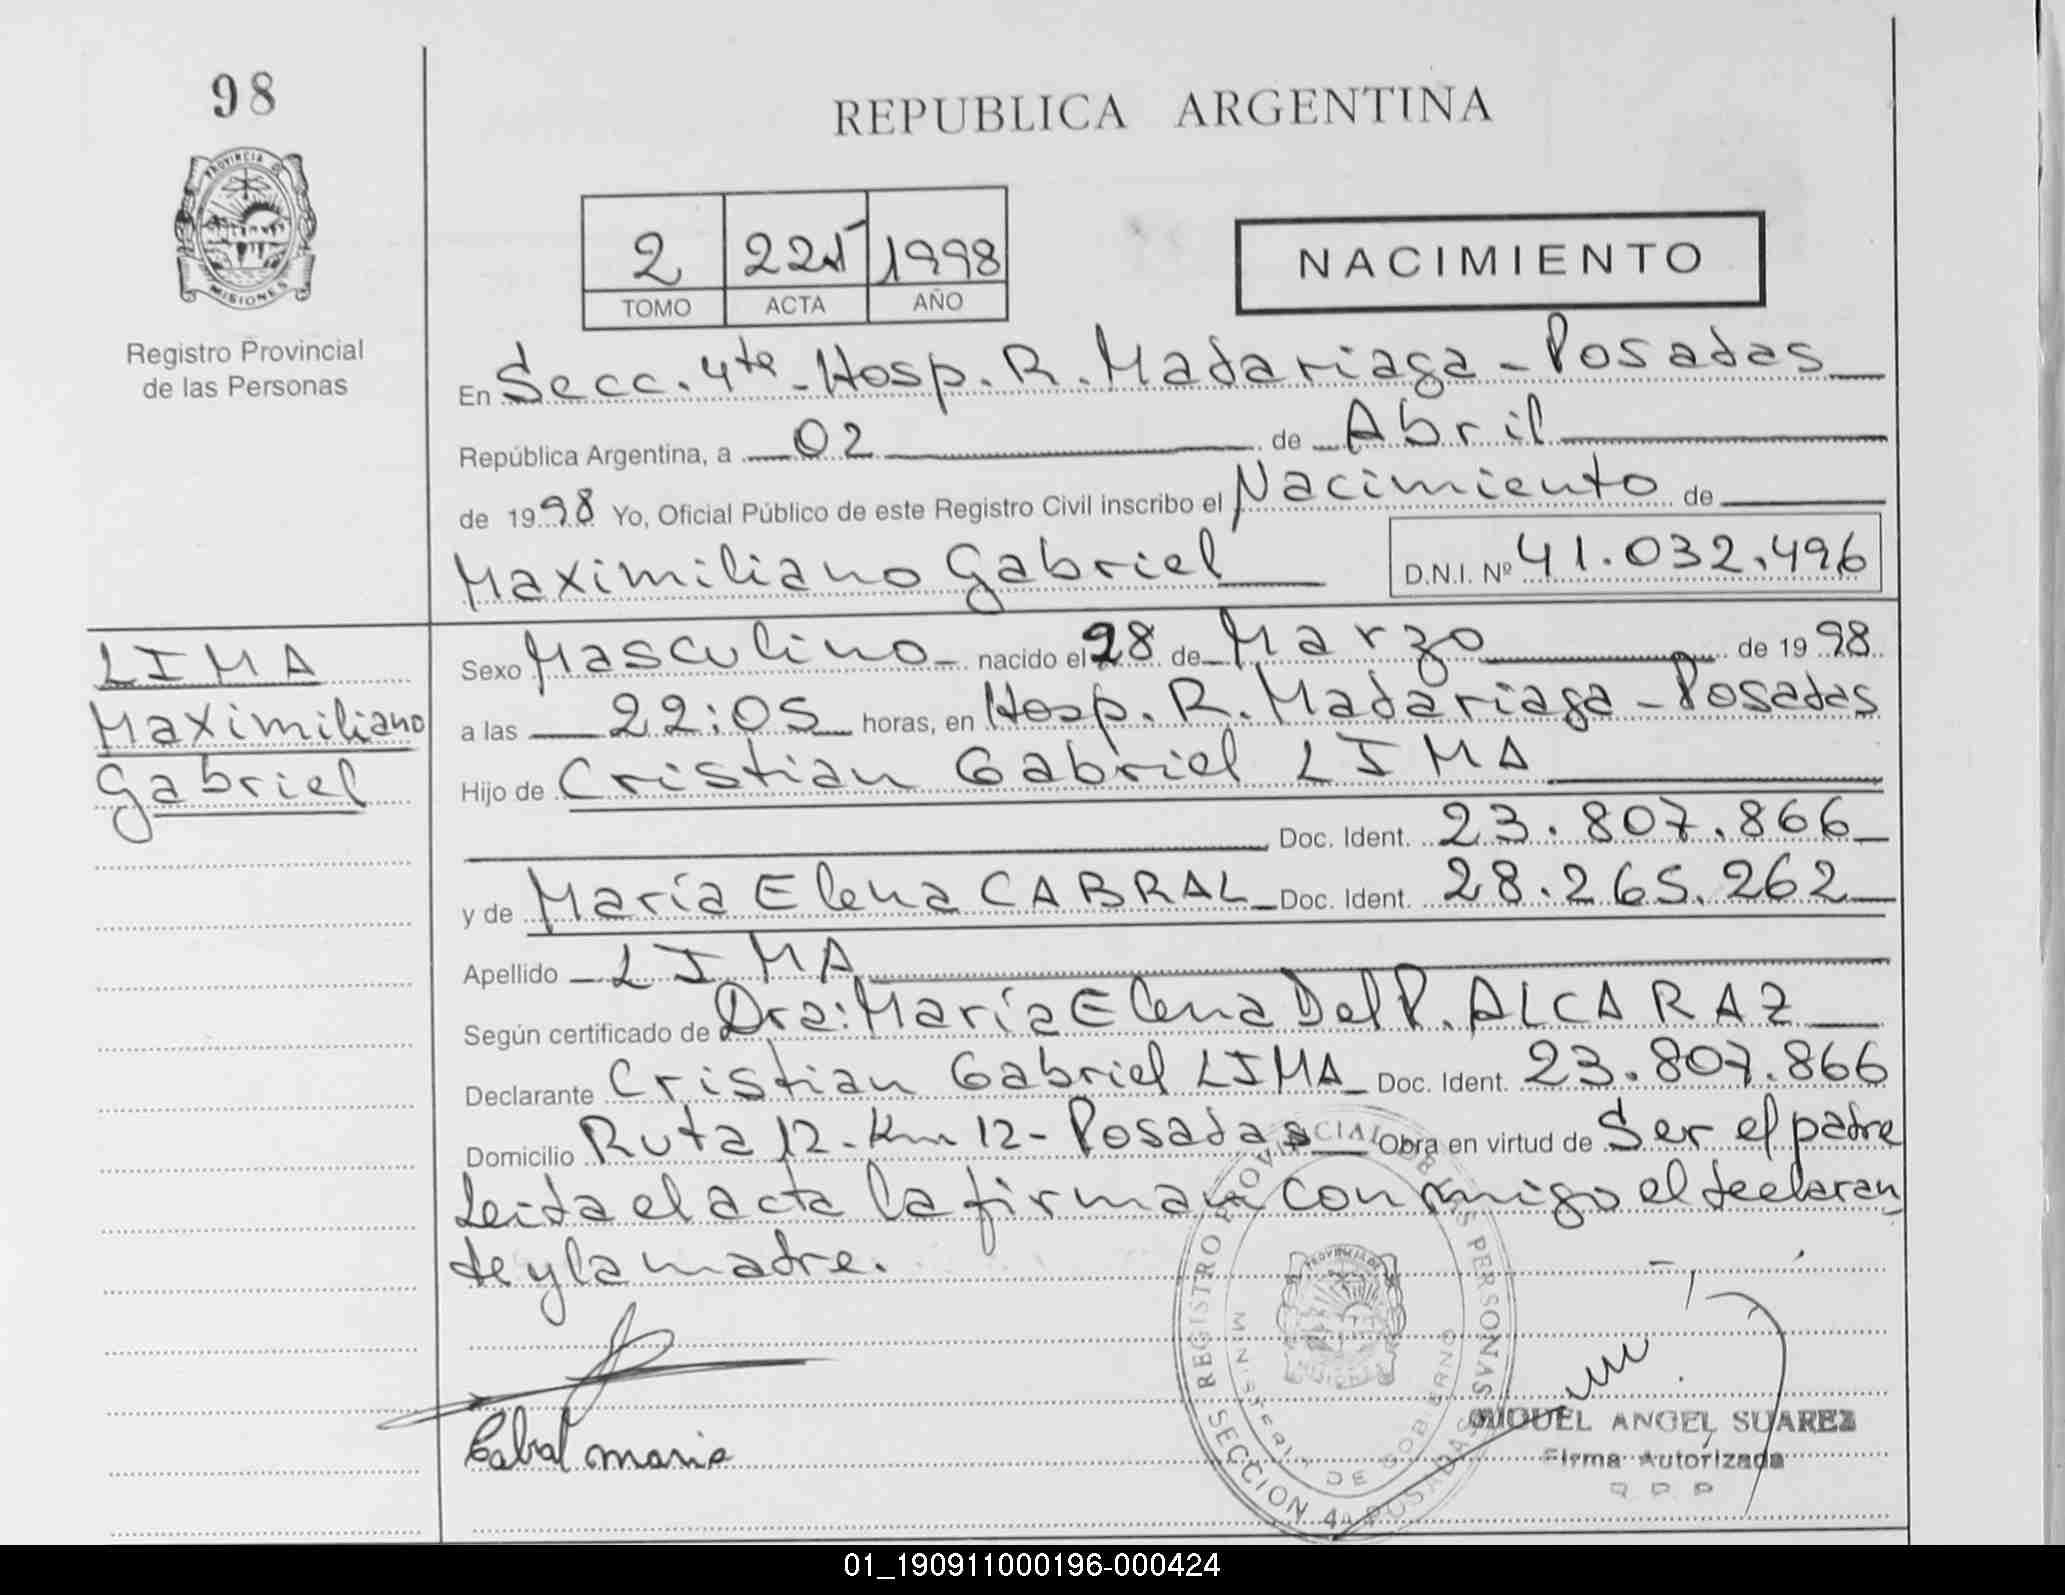 98
REPUBLICA ARGENTINA
PROVINCIA DE
MISIONES
Registro Provincial
de las Personas
2 225 1998
TOMO ACTA AÑO
NACIMIENTO
En Secc. 4ta - Hosp. R. Madariaga - Posadas
República Argentina, a 02 de Abril
de 1998 Yo, Oficial Público de este Registro Civil inscribo el Nacimiento de
Maximiliano Gabriel D.N.I. Nº 41.032.496
LIMA
Maximiliano
Gabriel
Sexo Masculino nacido el 28 de Marzo de 1998
a las 22:05 horas, en Hosp. R. Madariaga - Posadas
Hijo de Cristian Gabriel LIMA
Doc. Ident. 23.807.866
y de María Elena CABRAL Doc. Ident. 28.265.262
Apellido LIMA
Según certificado de Dra: María Elena Del P. ALCARAZ
Declarante Cristian Gabriel LIMA Doc. Ident. 23.807.866
Domicilio Ruta 12 - Km 12 - Posadas Obra en virtud de Ser el padre
Leida el acta la firman con migo el declaran
te y la madre.
Cabral maria
REGISTRO PROVINCIAL DE LAS PERSONAS
MINISTERIO DE GOBIERNO
SECCION 4a POSADAS
MIGUEL ANGEL SUAREZ
Firma Autorizada
R P P
01_190911000196-000424